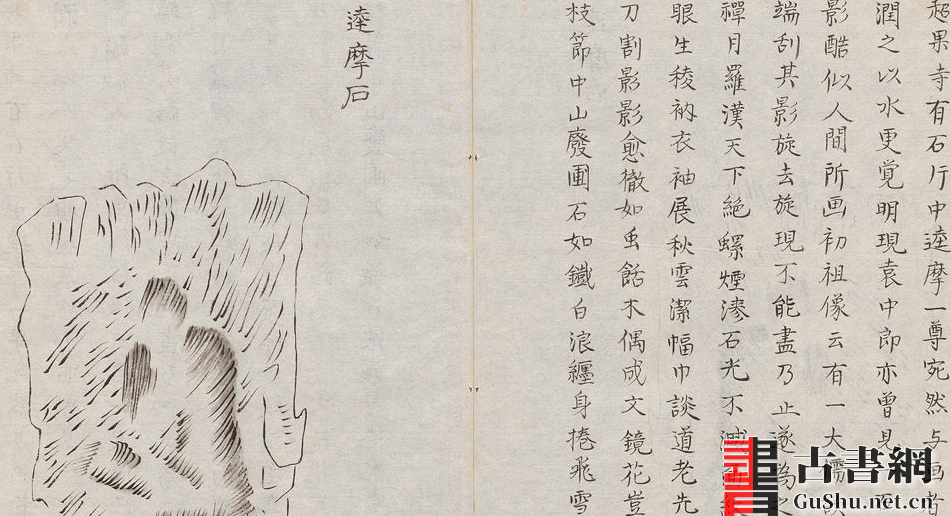 超果寺有石片中達摩一尊宛然与画者
潤之以水更覚明現袁中郎亦曾見
影酷似人間所画初祖像云有一大
端刮其影旋去旋現不能盡乃止遂為之
禪月羅漢天下絕螺煙滲石光不滅
眼生稜衲衣袖展秋雲潔幅巾談道老先
刀割影影愈徹如虫餂木偶成文鏡花豈
枝節中山廢圃石如鐵白浪纏身捲飛雪
達摩石
古書網
GuShu.net.cn